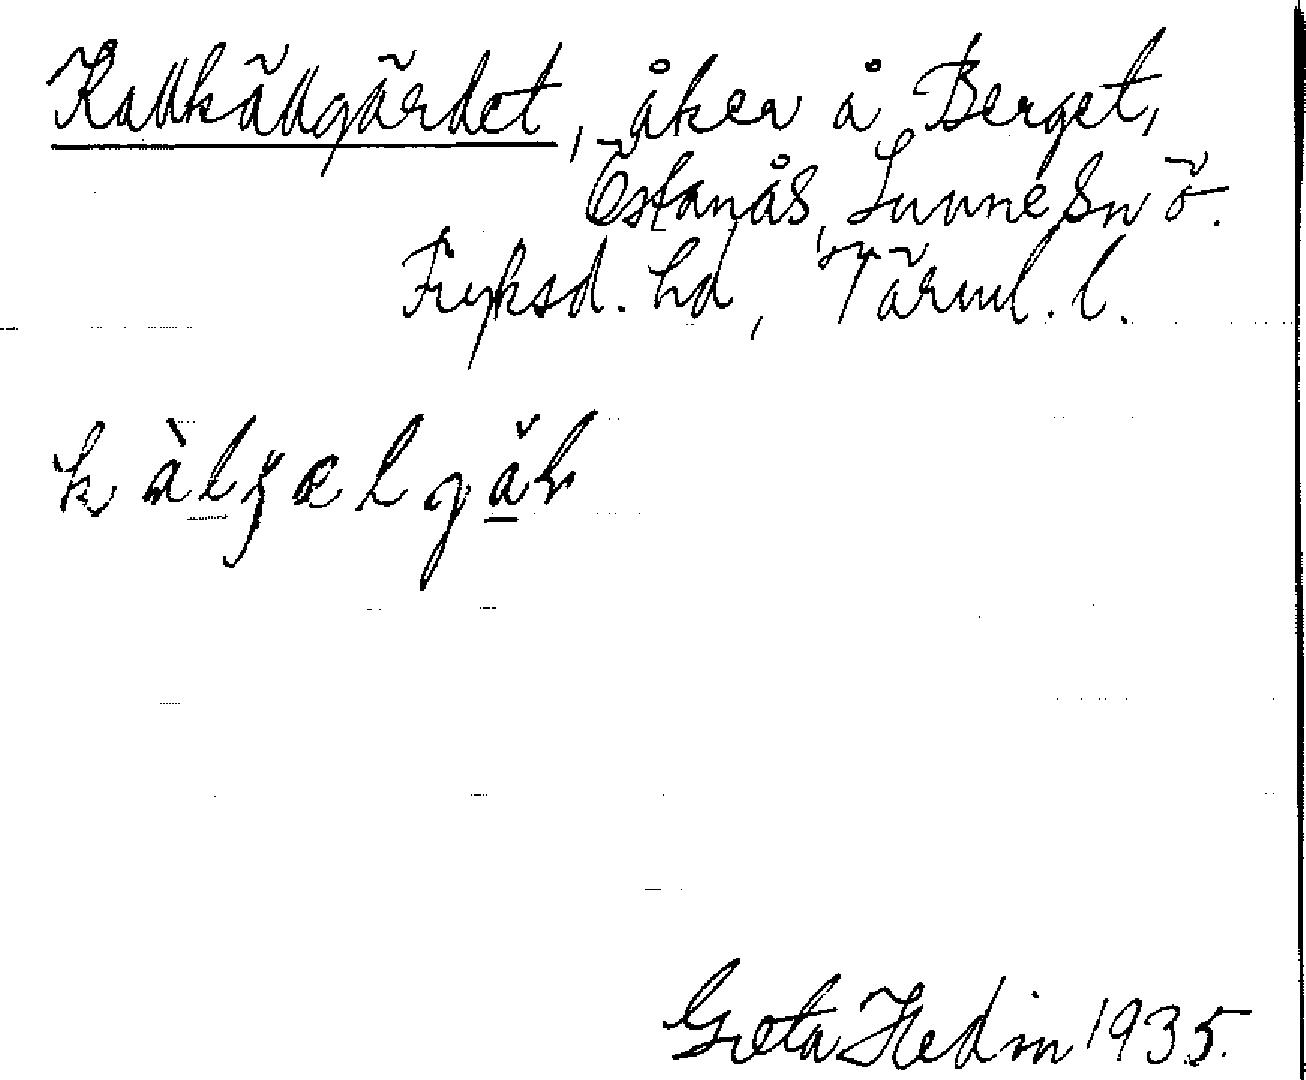 Kallkällgärdet, åker å Berget,
Östanås, Sunne sn ö.
Fryksd. hd, Värml. l.
Greta Hedin 1935.